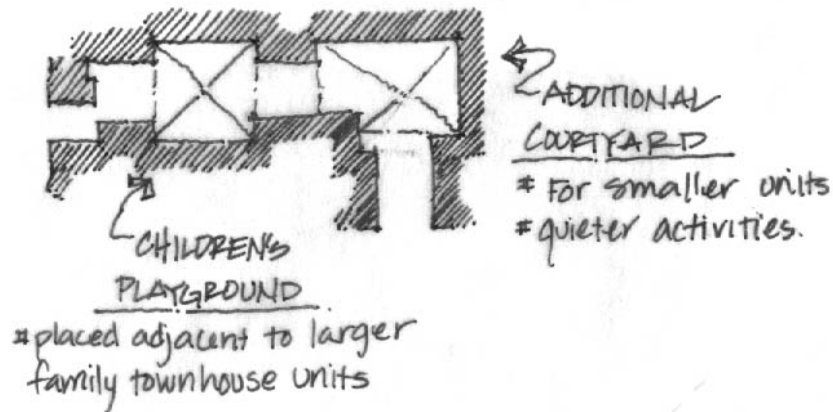 ADDITIONAL
COURTYARD
* For smaller units
* quieter activities.
CHILDREN'S
PLAYGROUND
* placed adjacent to larger
family townhouse units